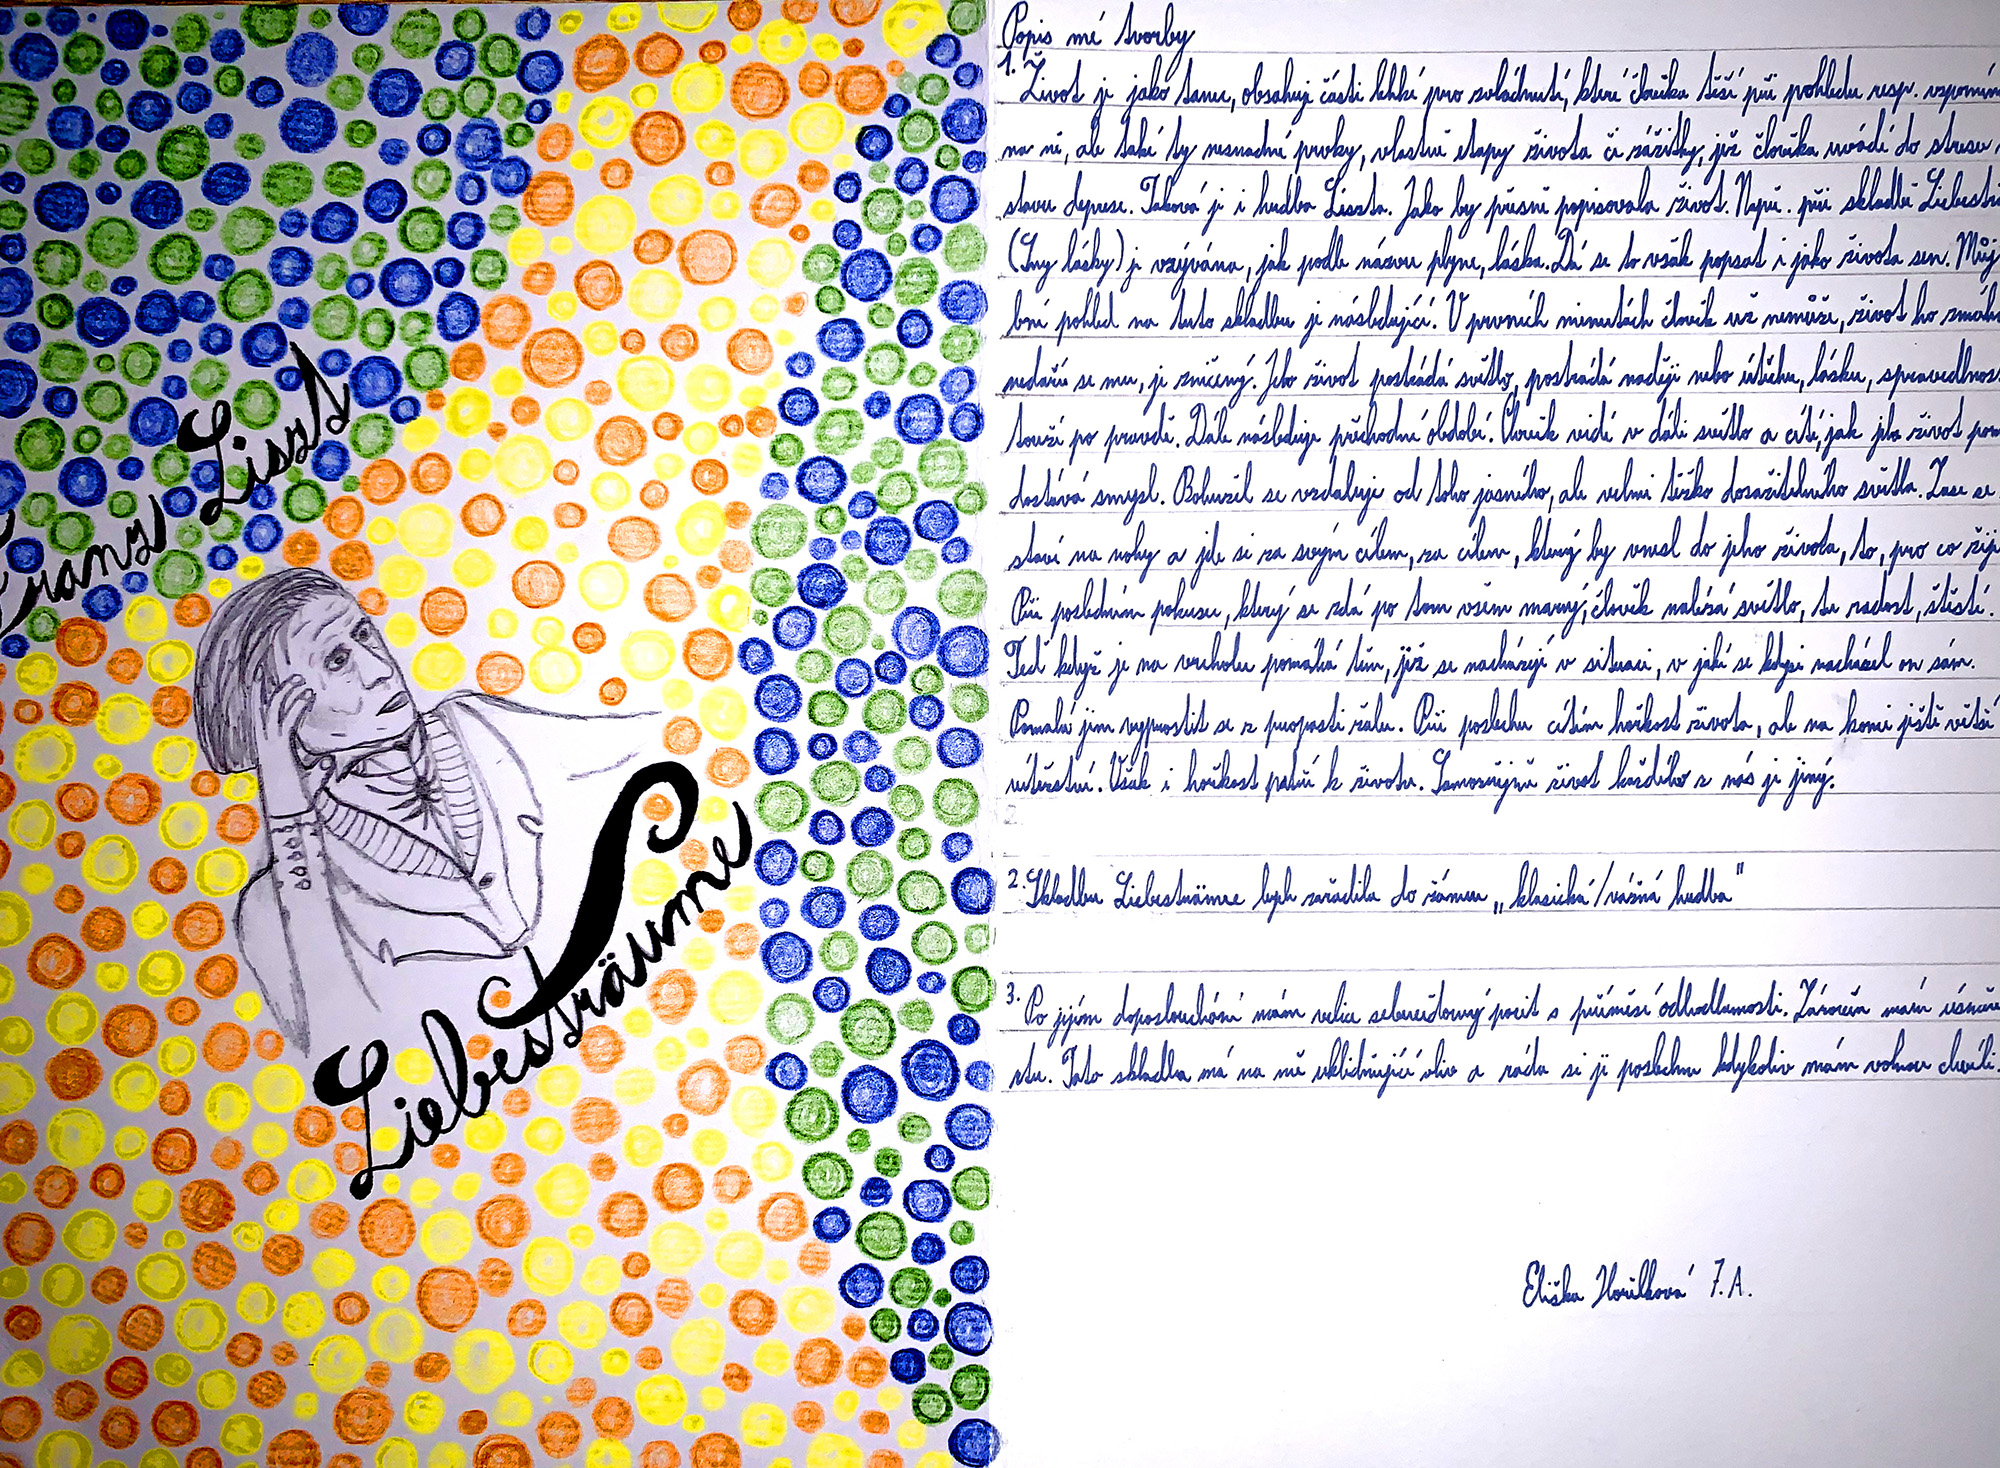 Franz Liszt
Liebesträume
Popis mé tvorby
1. Život je jako tanec, obsahuje části lehké pro zvládnutí, které člověka těší při pohledu resp. vzpomín
na ně, ale také ty nesnadné prvky, vlastně etapy života či zážitky, jež člověka uvádí do stresu
stavu deprese. Taková je i hudba Liszta. Jako by přesně popisovala život. Např. při skladbě Liebestr
(Sny lásky) je vzývána, jak podle názvu plyne, láska. Dá se to však popsat i jako života sen. Můj
bní pohled na tuto skladbu je následující. V prvních minutách člověk už nemůže, život ho zmáh
nedaří se mu, je zničený. Jeho život postrádá světlo, postrádá naději nebo útěchu, lásku, spravedlnos
touží po pravdě. Dále následuje přechodné období. Člověk vidí v dáli světlo a cítí, jak jeho život pom
dostává smysl. Bohužel se vzdaluje od toho jasného, ale velmi těžko dosažitelného světla. Zase se
staví na nohy a jde si za svým cílem, za cílem, který by vnesl do jeho života, to, pro co žije
Při posledním pokusu, který se zdá po tom všem marný, člověk nalézá světlo, tu radost, štěstí.
Teď když je na vrcholu pomáhá těm, již se nacházejí v situaci, v jaké se kdysi nacházel on sám.
Pomáhá jim vyprostit se z propasti žalu. Při poslechu cítím hořkost života, ale na konci ještě větší
vítězství. Však i hořkost patří k životu. Samozřejmě život každého z nás je jiný.
2. Skladbu Liebesträume bych zařadila do žánru „klasická/vážná hudba"
3. Po jejím doposlouchání mám velice sebevědomý pocit s příměsí odhodlanosti. Zároveň mám úsměv
rtu. Tato skladba má na mě uklidňující vliv a ráda si ji poslechnu kdykoliv mám volnou chvíli.
Eliška Hořílková 7.A.